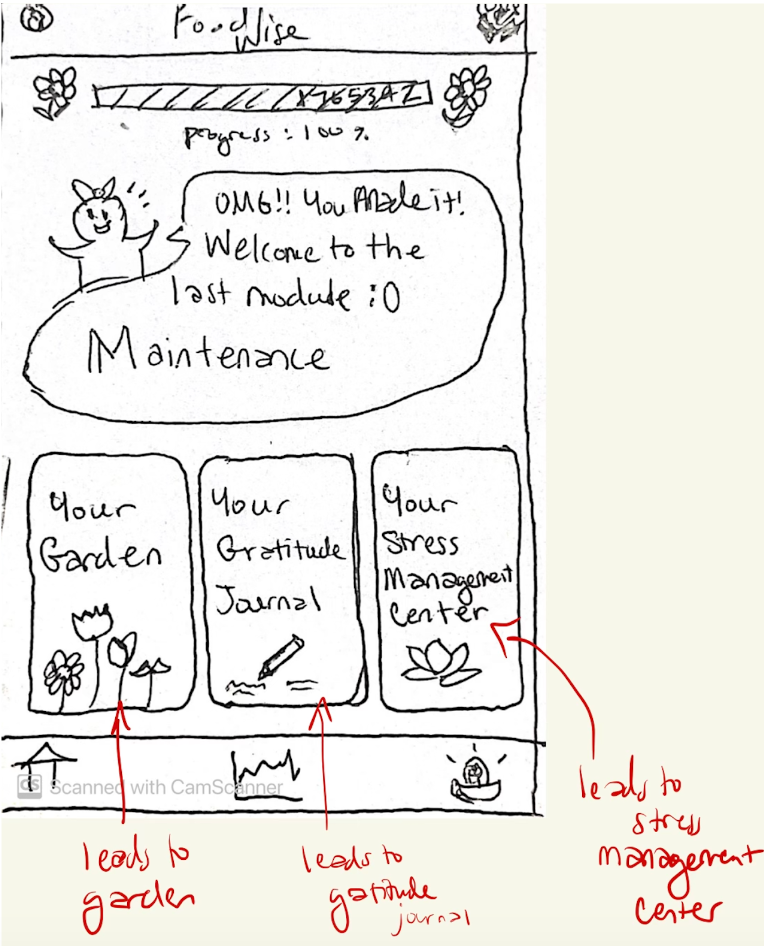 Foodwise
progress : 100 %
OMG!! You Made it!
Welcome to the
last module :O
Maintenance
Your
Garden
Your
Gratitude
Journal
Your
Stress
Management
Center
CS Scanned with CamScanner
leads to
garden
leads to
gatitude
journal
leads to
stress
management
center